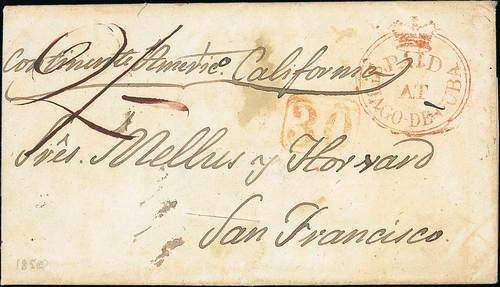 Continente Americo. California
2/-
PAID
AT
SᵀIAGO-DE-CUBA
30
Srês. Mellus y Horward
San Francisco.
1850